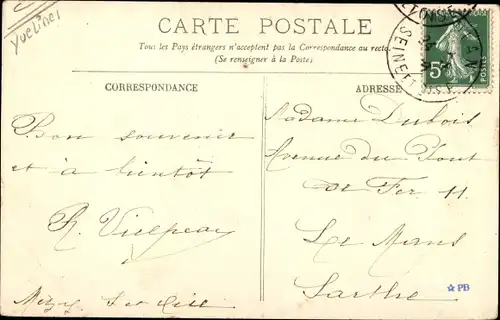 Yvelines
CARTE POSTALE
Tous les Pays étrangers n'acceptent pas la Correspondance au recto.
(Se renseigner à la Poste)
CORRESPONDANCE
ADRESSE
5
SEINE
Bon souvenir
et à bientôt
Madame Dubois
Avenue du Pont
de Fer 11
Le Mans
Sarthe
PB